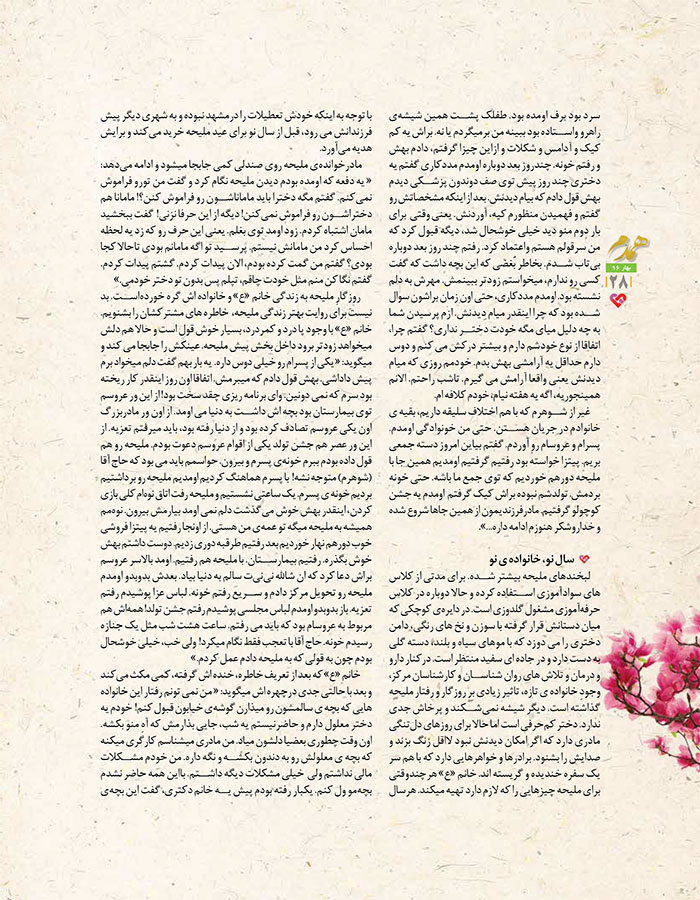 سرد بود برف اومده بود. طفلک پشت همین شیشه‌ی
راهرو واستاده بود ببینه من برمیگردم یا نه. براش یه کم
کیک و آدامس و شکلات و از این چیزا گرفتم، دادم بهش
و رفتم خونه. چند روز بعد دوباره اومدم مددکاری گفتم یه
دختری چند روز پیش توی صف دوندون پزشکی دیدم
بهش قول دادم که بیام دیدنش. بعد از اینکه مشخصاتش رو
گفتم و فهمیدن منظورم کیه، آوردنش. یعنی وقتی برای
بار دوم منو دید خیلی خوشحال شد، دیگه قبول کرد که
من سرقولم هستم و اعتماد کرد. رفتم چند روز بعد دوباره
بی‌تاب شدم. بخاطر بغضی که این بچه داشت که گفت
کسی رو ندارم، میخواستم زودتر ببینمش. مهرش به دلم
نشسته بود. اومدم مددکاری، حتی اون زمان براشون سوال
شده بود که چرا اینقدر میام دیدنش. ازم پرسیدن شما
به چه دلیل میای مگه خودت دختر نداری؟ گفتم چرا،
اتفاقا از نوع خودشم دارم و بیشتر درکش می کنم و دوس
دارم حداقل یه آرامشی بهش بدم. خودمم روزی که میام
دیدنش یعنی واقعا آرامش می گیرم. تا شب راحتم. الانم
همینجوریه، اگه یه هفته نیام؛ خودم کلافه ام.
غیر از شوهرم که با هم اختلاف سلیقه داریم، بقیه ی
خانوادم در جریان هستن. حتی من خونوادگی اومدم.
پسرام و عروسام رو آوردم. گفتم بیاین امروز دسته جمعی
بریم. پیتزا خواسته بود رفتیم گرفتیم اومدیم همین جا با
ملیحه دور هم خوردیم که توی جمع ما باشه. حتی خونه
بردمش. تولدشم نبوده براش کیک گرفتم اومدم یه جشن
کوچولو گرفتیم. مادرفرزندیمون از همین جاها شروع شده
و خداروشکر هنوزم ادامه داره...».
سال نو، خانواده ی نو
لبخندهای ملیحه بیشتر شده. برای مدتی از کلاس
های سوادآموزی استفاده کرده و حالا دوباره در کلاس
حرفه‌آموزی مشغول گلدوزی است. در دایره‌ی کوچکی که
میان دستانش قرار گرفته با سوزن و نخ های رنگی، دامن
دختری را می دوزد که با موهای سیاه و بلند، دسته گلی
به دست دارد و در جاده‌ای سفید منتظر است. در کنار دارو
و درمان و تلاش های روان شناسان و کارشناسان مرکز،
وجود خانواده ی تازه، تاثیر زیادی بر روزگار و رفتار ملیحه
گذاشته است. دیگر شیشه نمی‌شکند و پرخاش جدی
ندارد. دختر کم‌حرفی است اما حالا برای روزهای دل‌تنگی
مادری دارد که اگر امکان دیدنش نبود لااقل زنگ بزند و
صدایش را بشنود. برادرها و خواهرهایی دارد که با هم سر
یک سفره خندیده و گریسته اند. خانم «ع» هر چند وقتی
برای ملیحه چیزهایی را که لازم دارد تهیه میکند. هر سال
با توجه به اینکه خودش تعطیلات را در مشهد نبوده و به شهری دیگر پیش
فرزندانش می رود، قبل از سال نو برای عید ملیحه خرید می کند و برایش
هدیه می‌آورد.
مادرخوانده‌ی ملیحه روی صندلی کمی جابجا میشود و ادامه می‌دهد:
«یه دفعه که اومده بودم دیدن ملیحه نگام کرد و گفت من تورو فراموش
نمی کنم. گفتم مگه دخترا باید ماماناشون رو فراموش کنن؟! مامانا هم
دختراشون رو فراموش نمی‌کنن! دیگه از این حرفا نزنی! گفت ببخشید
مامان اشتباه کردم. زود اومد توی بغلم. یعنی این حرف رو که زد یه لحظه
احساس کرد من مامانش نیستم. پرسید تو اگه مامانم بودی تا حالا کجا
بودی؟ گفتم من گمت کرده بودم، الان پیدات کردم. گشتم پیدات کردم.
گفتم نگا کن منم مثل خودت چاقم، تپلم پس بدون تو دختر خودمی.»
روزگار ملیحه به زندگی خانم «ع» و خانواده اش گره خورده‌است. بد
نیست برای روایت بهتر زندگی ملیحه، خاطره های مشترکشان را بشنویم.
خانم «ع» با وجود پا درد و کمردرد، بسیار خوش قول است و حالا هم دلش
میخواهد زودتر برود داخل بخش پیش ملیحه. عینکش را جابجا می کند و
میگوید: «یکی از پسرام رو خیلی دوس داره. یه بار بهم گفت دلم میخواد برم
پیش داداشی. بهش قول دادم که میبرمش. اتفاقا اون روز اینقدر کار ریخته
بود سرم که نمی دونین، وای برنامه ریزی چقد سخت بود! از این ور عروسم
توی بیمارستان بود بچه اش داشت به دنیا می اومد. از اون ور مادربزرگ
اون یکی عروسم تصادف کرده بود و از دنیا رفته بود، باید میرفتم تعزیه. از
این ور عصر هم جشن تولد یکی از اقوام عروسم دعوت بودم. ملیحه رو هم
قول داده بودم ببرم خونه‌ی پسرم و بیرون. حواسمم باید می بود که حاج آقا
(شوهرم) متوجه نشه! با پسرم هماهنگ کردیم اومدیم ملیحه رو برداشتیم
بردیم خونه ی پسرم. یک ساعتی نشستیم و ملیحه رفت اتاق نوه‌ام کلی بازی
کردن، اینقدر بهش خوش می گذشت دلم نمی اومد بیارمش بیرون. نوه‌مم
همیشه به ملیحه میگه تو عمه‌ی من هستی. از اونجا رفتیم یه پیتزا فروشی
خوب دور هم نهار خوردیم بعد رفتیم طرقبه دوری زدیم. دوست داشتم بهش
خوش بگذره. رفتیم بیمارستان. با ملیحه هم رفتیم. اومد بالاسر عروسم
براش دعا کرد که ان شالله نی‌نی‌ت سالم به دنیا بیاد. بعدش بدوبدو اومدم
ملیحه رو تحویل مرکز دادم و سریع رفتم خونه. لباس عزا پوشیدم رفتم
تعزیه. باز بدوبدو اومدم لباس مجلسی پوشیدم رفتم جشن تولد! همه‌اش هم
مربوط به عروسام بود که باید می رفتم. ساعت هشت شب مثل یک جنازه
رسیدم خونه. حاج آقا با تعجب فقط نگام میکرد! ولی خب، خیلی خوشحال
بودم چون به قولی که به ملیحه دادم عمل کردم.»
خانم «ع» که بعد از تعریف خاطره، خنده اش گرفته، کمی مکث می کند
و بعد با حالتی جدی در چهره اش میگوید: «من نمی تونم رفتار این خانواده
هایی که بچه ی سالمشون رو میذارن گوشه‌ی خیابون قبول کنم! خودم یه
دختر معلول دارم و حاضر نیستم یه شب، جایی بذارمش که آه منو بکشه.
اون وقت چطوری بعضیا دلشون میاد. من مادری میشناسم کارگری میکنه
که بچه ی معلولش رو به دندون بکشه و نگه داره. من خودم مشکلات
مالی نداشتم ولی خیلی مشکلات دیگه داشتم. بااین همه حاضر نشدم
بچه‌مو ول کنم. یکبار رفته بودم پیش یه خانم دکتری، گفت این بچه‌ی
همدم
بهار ۹۶
۲۸